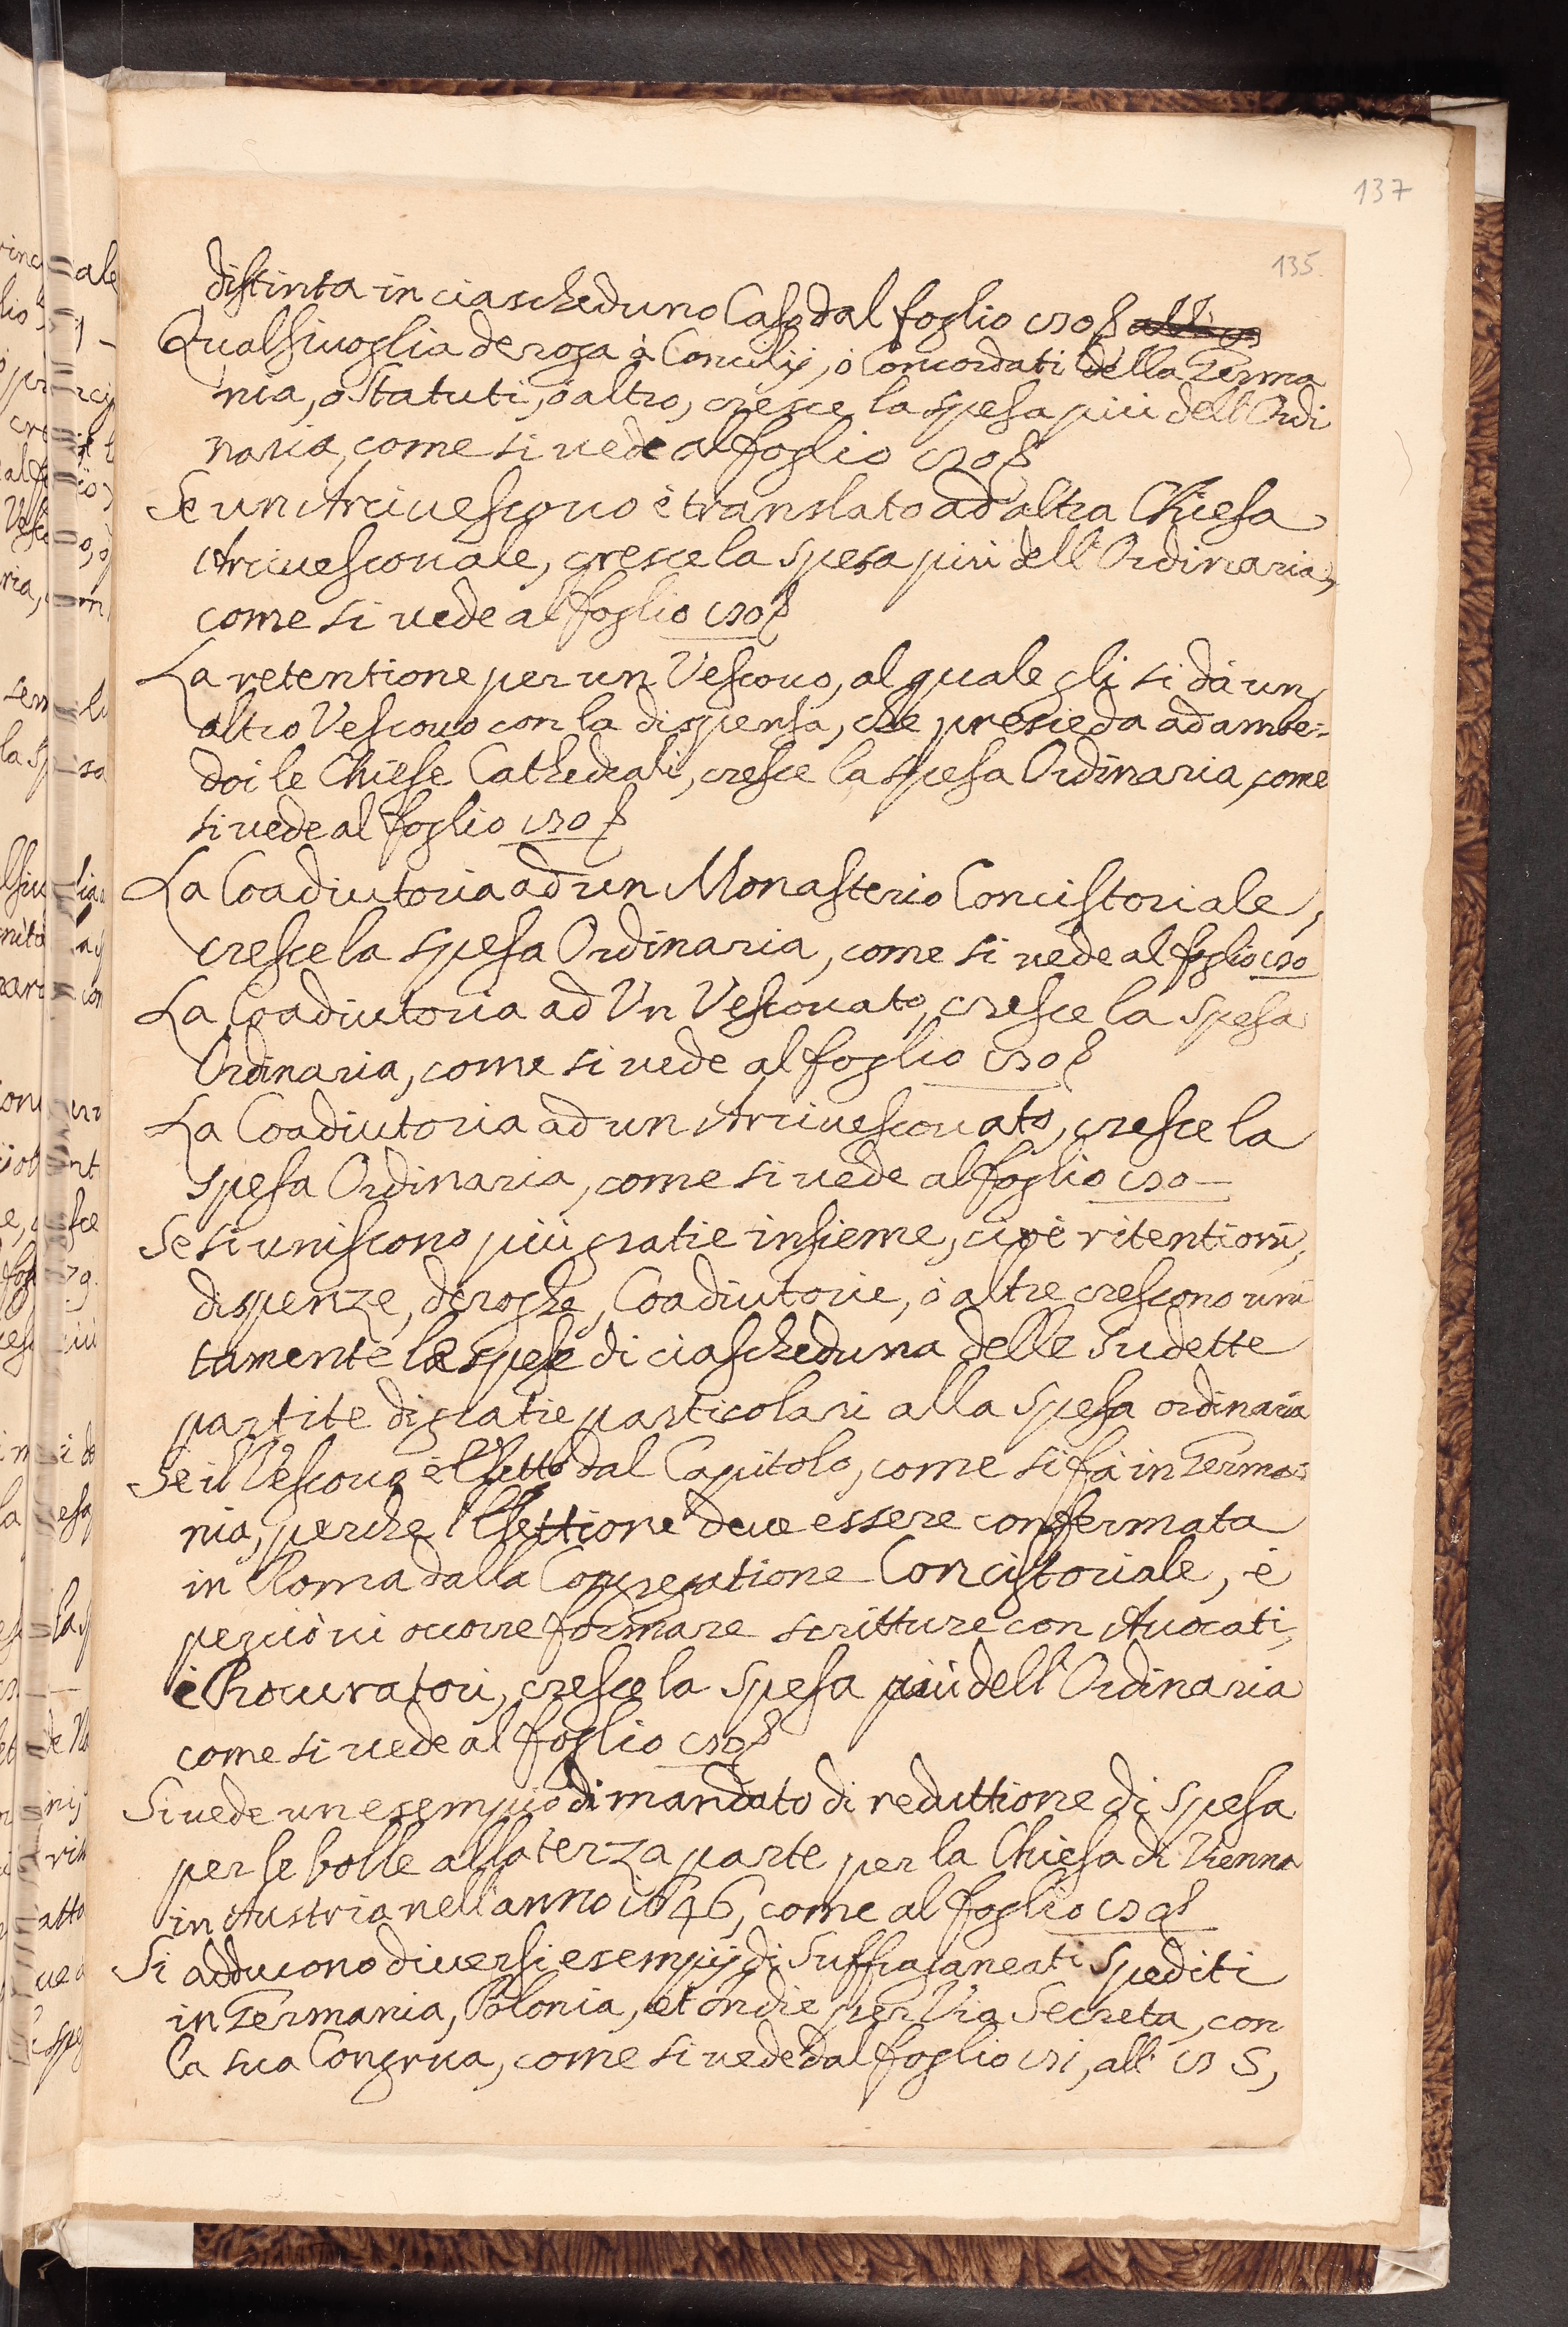 137
135.
distinta in ciascheduno Caso dal foglio 130
Qualsiuoglia deroga à Concilij, ò Concordati della Germa
nia, ò Statuti, ò altro, cresce la spesa più dell'Ordi
naria, come si uede al foglio 130
Se un Arciuescouo è translato ad altra Chiesa
Arciuescouale, cresce la spesa più dell'Ordinaria,
come si uede al foglio 130
La retentione per un Vescouo, al quale gli si dà un
altro Vescouo con la dispensa, che presieda ad ambe=
doi le Chiese Cathedrali, cresce la spesa Ordinaria, come
si uede al foglio 130
La Coadiutoria ad un Monasterio Concistoriale,
cresce la spesa Ordinaria, come si uede al foglio 130
La Coadiutoria ad Vn Vescouato, cresce la spesa
Ordinaria, come si uede al foglio 130
La Coadiutoria ad un Arciuescouato, cresce la
spesa Ordinaria, come si uede al foglio 130 —
Se si uniscono più gratie insieme, cioè ritentioni,
dispenze, deroghe, Coadiutorie, ò altre crescono uni
tamente le spese di ciascheduna delle sudette
partite di gratie particolari alla spesa ordinaria
Se il Vescouo è Eletto dal Capitolo, come si fà in Germa=
nia, perche l'Elettione deue essere confermata
in Roma dalla Congregatione Concistoriale, è
perciò ui occorre formare scritture con Auocati,
è Procuratori, cresce la spesa più dell'Ordinaria
come si uede al foglio 130
Si uede un esempio di mandato di reduttione di spesa
per le bolle alla terza parte per la Chiesa di Vienna
in Austria nell'anno 1646, come al foglio
Si adducono diuersi esempij di Suffraganeati spediti
in Germania, Polonia, et ondie per Via Secreta, con
la sua Congrua, come si uede dal foglio 131, all' 135,